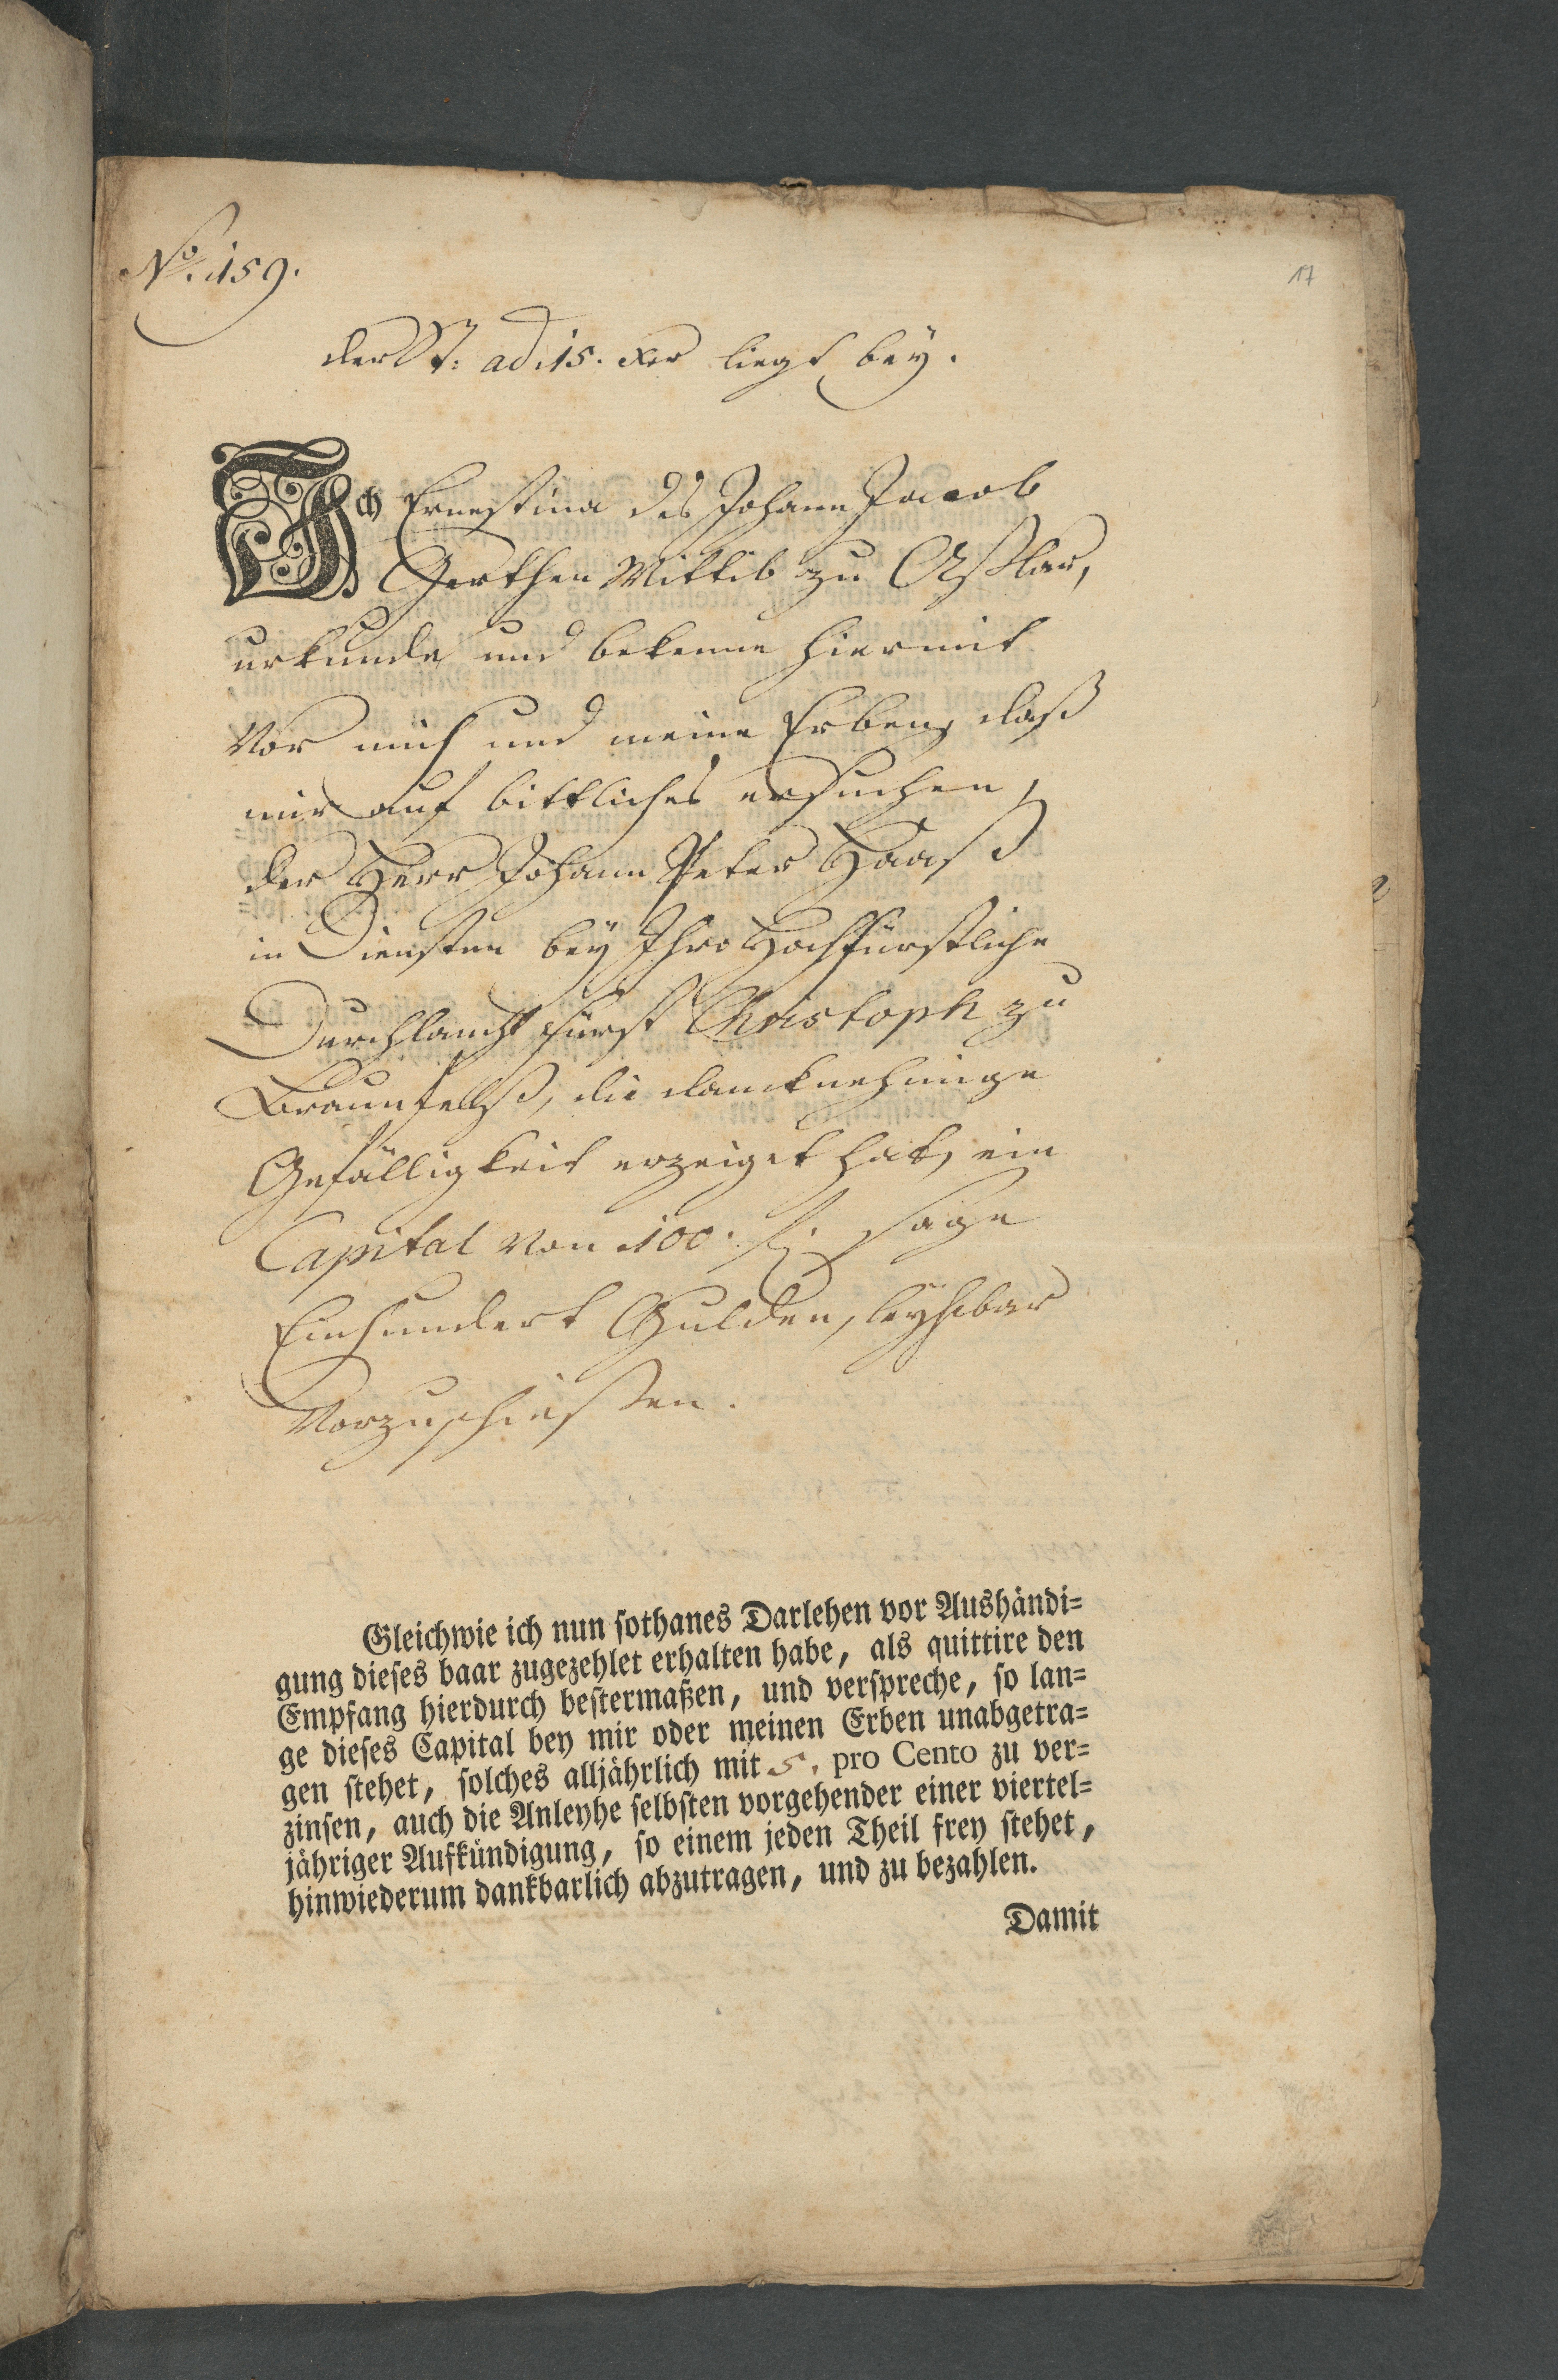 No. 159.
17
der St: ad 15. xer liegt bey.
Ich Ernestina des Johann Jacob
Gerthen Wittib zu Aßlar,
urkunde und bekenne hiermit
vor mich und meine Erben, daß
mir auf bittliches ersuchen,
der Herr Johann Peter Haaß
in Diensten bey Ihro Hochfürstliche
Durchlaucht Fürst Christoph zu
Braunfelß, die dancknehmige
Gefälligkeit erzeiget hat, ein
Capital von 100. f. sage
Einhundert Gulden, leyhbar
vorzuschießen.
Gleichwie ich nun sothanes Darlehen vor Aushändi=
gung dieses baar zugezehlet erhalten habe, als quittire den
Empfang hierdurch bestermaßen, und verspreche, so lan=
ge dieses Capital bey mir oder meinen Erben unabgetra=
gen stehet, solches alljährlich mit 5. pro Cento zu ver=
zinsen, auch die Anleyhe selbsten vorgehender einer viertel=
jähriger Aufkündigung, so einem jeden Theil frey stehet,
hinwiederum dankbarlich abzutragen, und zu bezahlen.
Damit